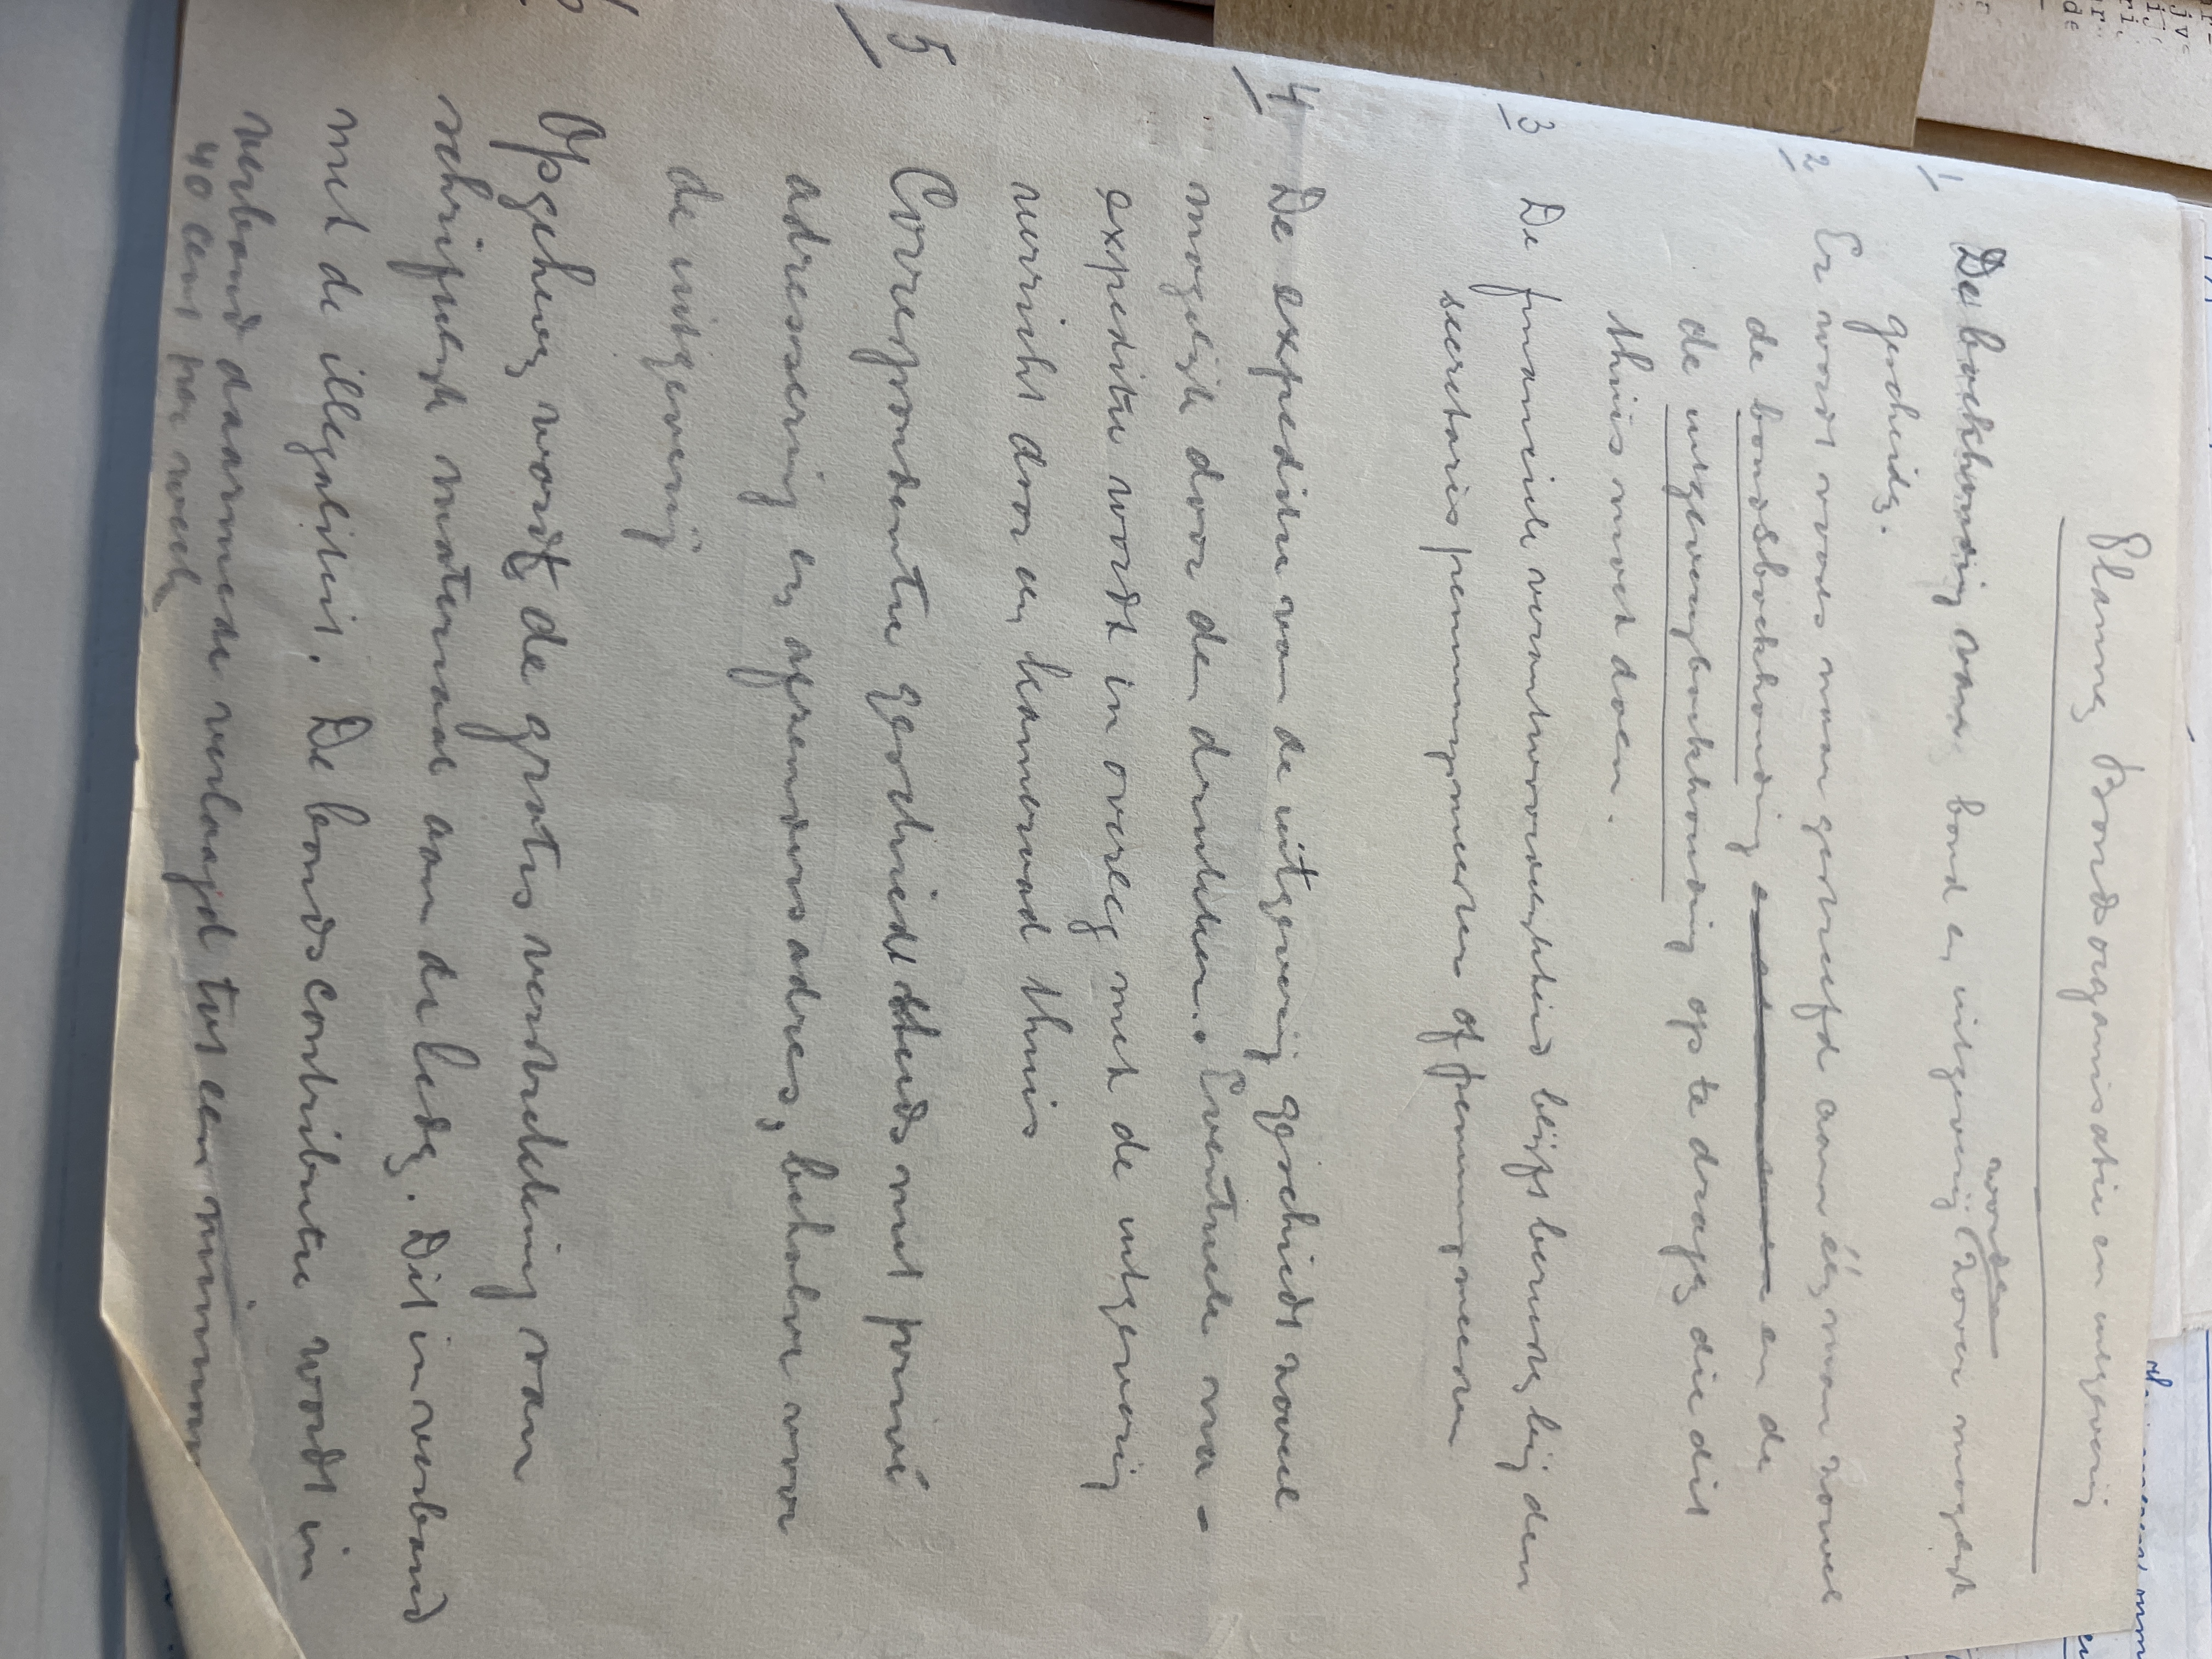 Planneg Bondsorganisatie en uitgeverij
1 De boekhouding van bond en uitgeverij worden (zover mogelijk
gescheidg.
2 Er wordt naar gestreefd aan éég man zowel
de bondsboekhouding en de
de uitgeverijboekhouding op te drageg die dit
thuis moet doen.
3 De financiele verantwoordelijkheid blijft berusteg bij den
secretaris penningmeester of penningmeester
4 De expeditie van de uitgeverij geschiedt zoveel
mogelijk door den drukker. Eventuele na-
expeditie wordt in overleg met de uitgeverij
verricht door eeg kameraad thuis
5 Correspondentie geschiedt steeds met privé
adressering eg afzendersadres, behalve voor
de uitgeverij
6 Opgeheveg wordt de gratis verstrekking van
schriftelijk materiaal aan de ledeg. Dit in verband
met de illegaliteit. De bondscontributie wordt in
verband daarmede verlaagd tot een minimum
40 cent per week